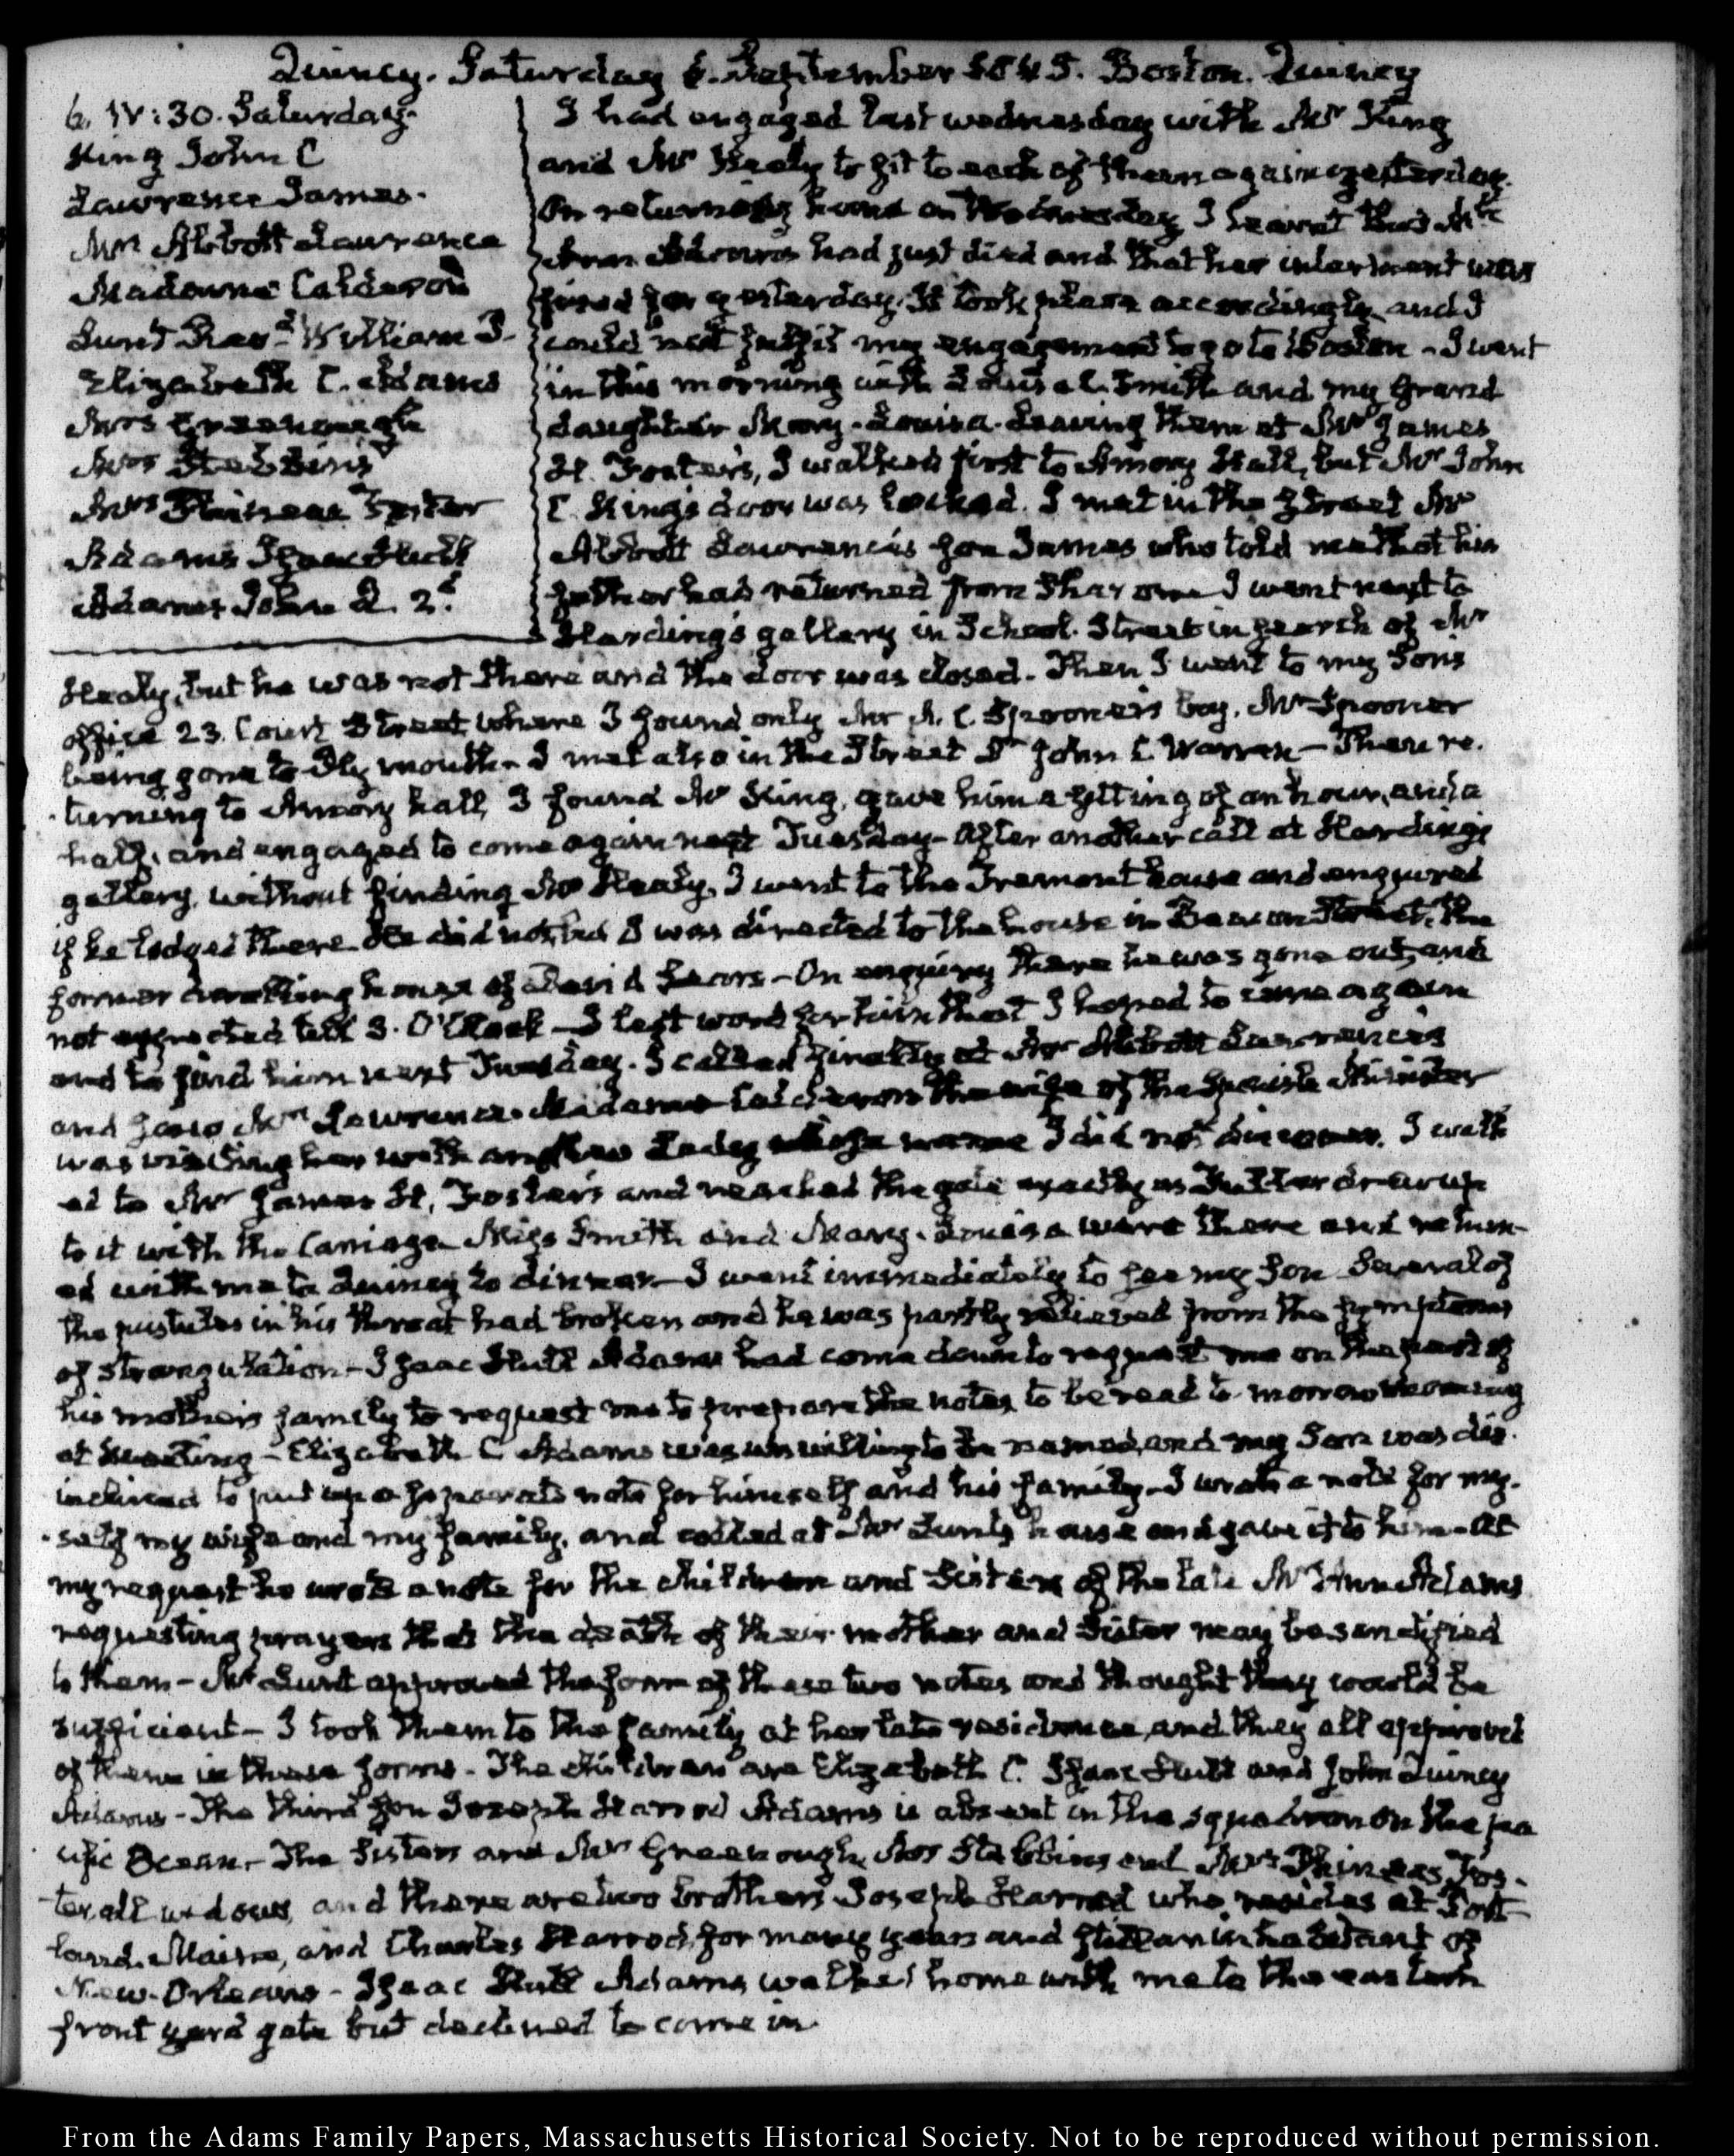 Quincy. Saturday 6. September 1845. Boston. Quincy
6. IV:30. Saturday.
King John C
Lawrence James.
Mrs Abbott Lawrence
Madame Calderon
Lunt Revd William P.
Elizabeth C. Adams
Mrs Greenough
Mrs Stebbins
Mrs Phineas Foster
Adams Isaac Hull
Adams John Q. 2d
I had engaged last wednesday with Mr King
and Mr Healy to sit to each of them again yesterday.
On returning home on Wednesday I learnt that Mrs
Ann Adams had just died and that her interment was
fixed for yesterday. It took place accordingly and I
could not fulfil my engagement to go to Boston – I went
in this morning with Louisa C. Smith and my Grand
daughter Mary-Louisa. Leaving them at Mr James
H. Foster's, I walked first to Amory Hall, but Mr John
C. King's door was locked. I met in the Street Mr
Abbott Lawrence's son James who told me that his
father had returned from Sharon I went next to
Harding's gallery in School Street in search of Mr
Healy, but he was not there and the door was closed. Then I went to my Son's
office 23. Court Street where I found only Mr A. C. Spooner's boy, Mr Spooner
being gone to Plymouth – I met also in the Street Dr John C Warren – Then re-
turning to Amory hall, I found Mr King, gave him a sitting of an hour and a
half, and engaged to come again next Tuesday – After another call at Harding's
gallery, without finding Mr Healy, I went to the Tremont house and enquired
if he lodged there. He did not, but I was directed to the house in Beacon Street, the
former dwelling house of David Sears – On enquiry there he was gone out, and
not expected till 3. O'Clock – I left word for him that I hoped to come again
and to find him next Tuesday. I called finally at Mr Abbott Lawrence's
and saw Mrs Lawrence. Madame Calderon the wife of the Spanish Minister
was visiting her with another Lady whose name I did not discover. I walk
ed to Mr James H. Foster's and reached the gate exactly as Fuller drew up
to it with the Carriage Miss Smith and Mary-Louisa were there and return-
ed with me to Quincy to dinner – I went immediately to see my Son Several of
the pustules in his throat had broken and he was partly relieved from the symptoms
of strangulation – Isaac Hull Adams had come down to request me on the part of
his mother's family to request me to prepare the notes to be read to-morrow morning
at Meeting – Elizabeth C Adams was unwilling to be named, and my Son was dis-
inclined to put up a separate note for himself and his family – I wrote a note for my-
self my wife and my family, and called at Mr Lunt's house and gave it to him – At
my request he wrote a note for the children and Sisters of the late Mrs Ann Adams
requesting prayers that the death of their mother and Sister may be sanctified
to them – Mr Lunt approved the form of these two notes and thought they would be
sufficient – I took them to the family at her late residence, and they all approved
of them in these forms – The children are Elizabeth C. Isaac Hull and John Quincy
Adams – The third son Joseph Harrod Adams is absent in the squadron on the pa
cific Ocean. The Sisters and Mrs Greenough, Mrs Stebbins and Mrs Phineas Fos-
ter all widows, and there are two brothers Joseph Harrod who resides at Port-
land. Maine, and Charles Harrod, for many years and still an inhabitant of
New-Orleans – Isaac Hull Adams walked home with me to the eastern
front yard gate but declined to come in.
From the Adams Family Papers, Massachusetts Historical Society. Not to be reproduced without permission.